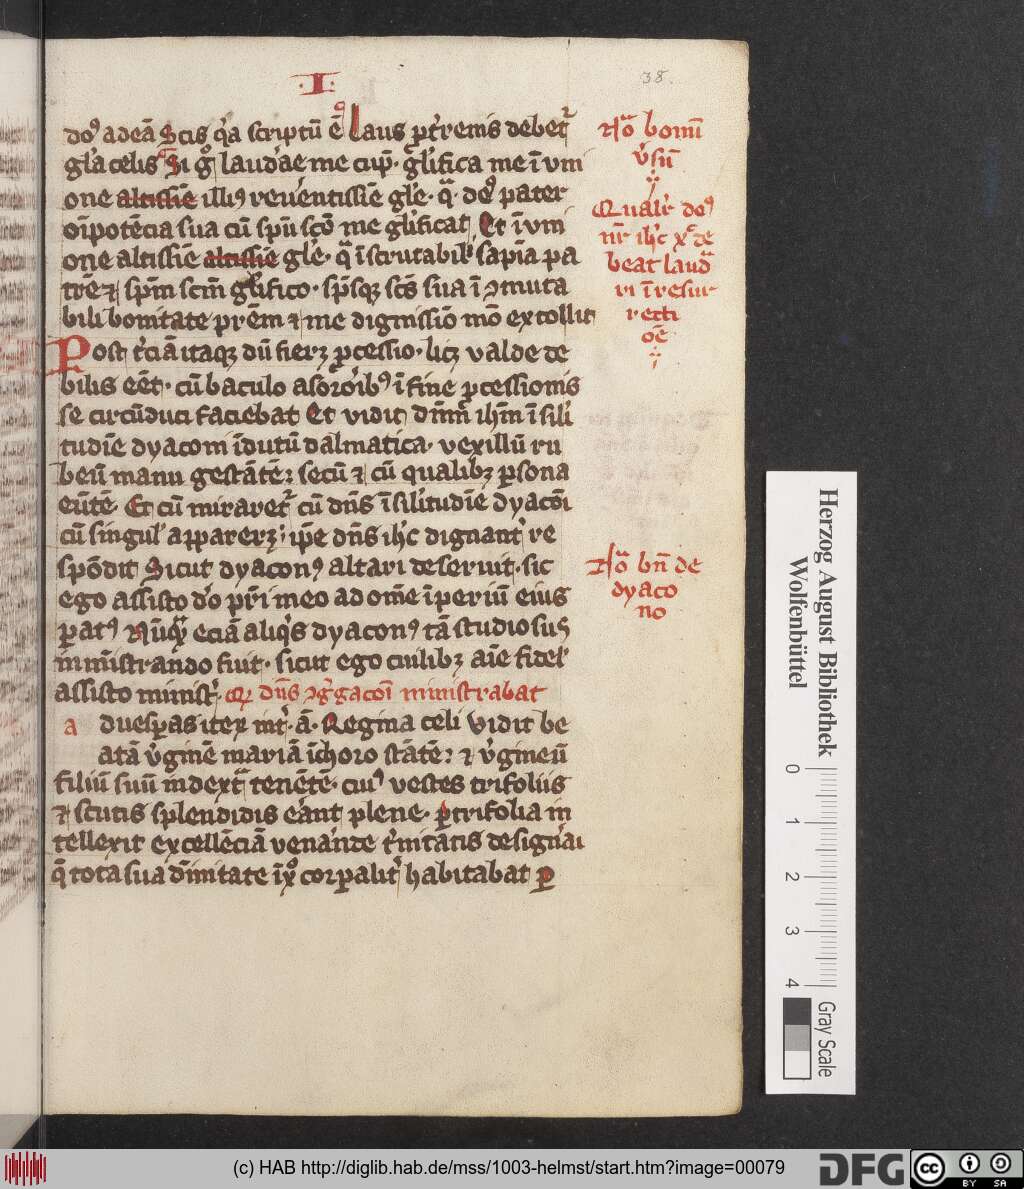 ·I·
38.
do⁹ adeā Scis q'a scriptū ē Laus
gl'a celis Si g° laudare me cup̄· gl'ifica me ī vni
one altissīe illi⁹ reuerentissīe gl'e· q̄ de⁹ pater
oīpotēcia sua cū spū scō me gl'ificat Et ī vni
one altissīe altissīe gl'e· q̄ īscrutabili sapīa pa
trē ⁊ spm̄ scm̄ gl'ifico· spūsqꝫ scs̄ sua ī ꝯmuta
bili bonitate prēm ⁊ me dignissīo mō extollit
Post t'ciā itaqꝫ dū fieret ꝓcessio· licꝫ valde de
bilis eēt· cū baculo a sororibꝰ ī fine ꝓcessionis
se circūduci faciebat Et vidit dn̄m ihm̄ ī sili
tudīe dyaconi īdutū dalmatica· vexillū ru
beū manu gestātē: secū ⁊ cū qualibꝫ ꝑsona
eūtē· Et cū miraret' cū dn̄s ī silitudīe dyacōi
cū singul' apparerꝫ: ip̄e dn̄s ihc̄ dignant' re
spōdit Sicut dyaconꝰ altari deseruit· sic
ego assisto d'o pr̄i meo ad om̄e īperiū eius
ꝑatꝰ Nūq̄ eciā aliq's dyaconꝰ tā studiosus
in mīstrando fuit· sicut ego cuilibꝫ aīe fidel'
assisto minist'· Qꝛ dn̄s ꝯg'gacōi ministrabat
a duesꝑas iteꝝ int'· ā· Regina celi vidit be
atā v'ginē mariā ī choro stātē: ⁊ v'gineū
filiū suū in dext'a tenētē· cuiꝰ vestes trifoliis
⁊ scutis splendidis erant plene· ꝑ trifolia in
tellexit excellēciā venerande t'nitatis designari
q̄ tota sua diuinitate ī xp̄o corꝑalit' habitabat ꝑ
No bonū
v'sū
Qualit' do⁹
nr̄ ihc̄ xp̄c de
beat laud
ri ī resur
recti
oē
No bn̄ de
dyaco
no
Herzog August Bibliothek
Wolfenbüttel
0 1 2 3 4
Gray Scale
(c) HAB http://diglib.hab.de/mss/1003-helmst/start.htm?image=00079
DFG
cc BY SA